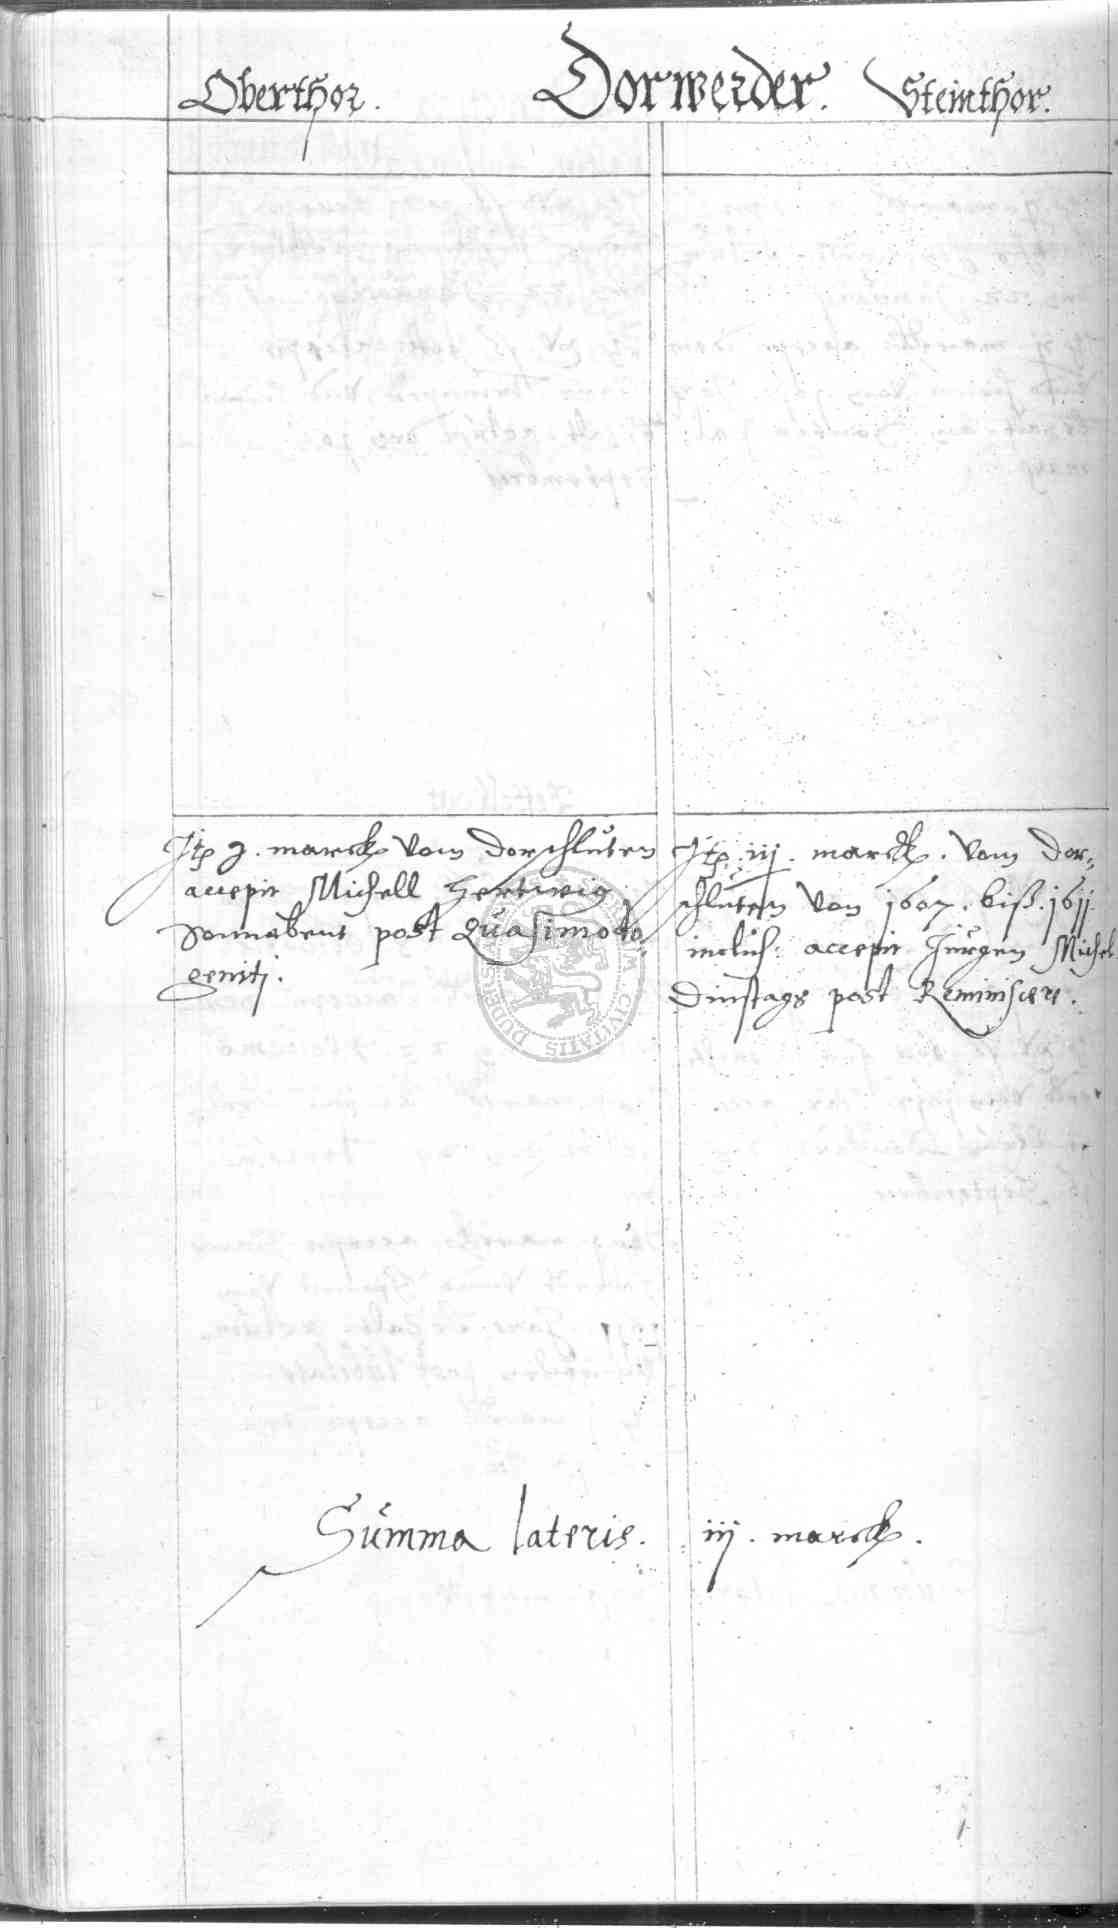 Oberthor. Dorwerder. Steinthor.
Jtp . marck vom dorschluten
accepit Michell Hertwig
Sonnabent post Quasimodo
genitj.
Jtp iij. marck. vom dor¬
schluten von 1607. biß. 1611
inclus: accepit Jürgen Michel
Dinstags post Reminiscere.
Summa lateris. iij. marck.
CIVITATIS DUDERS